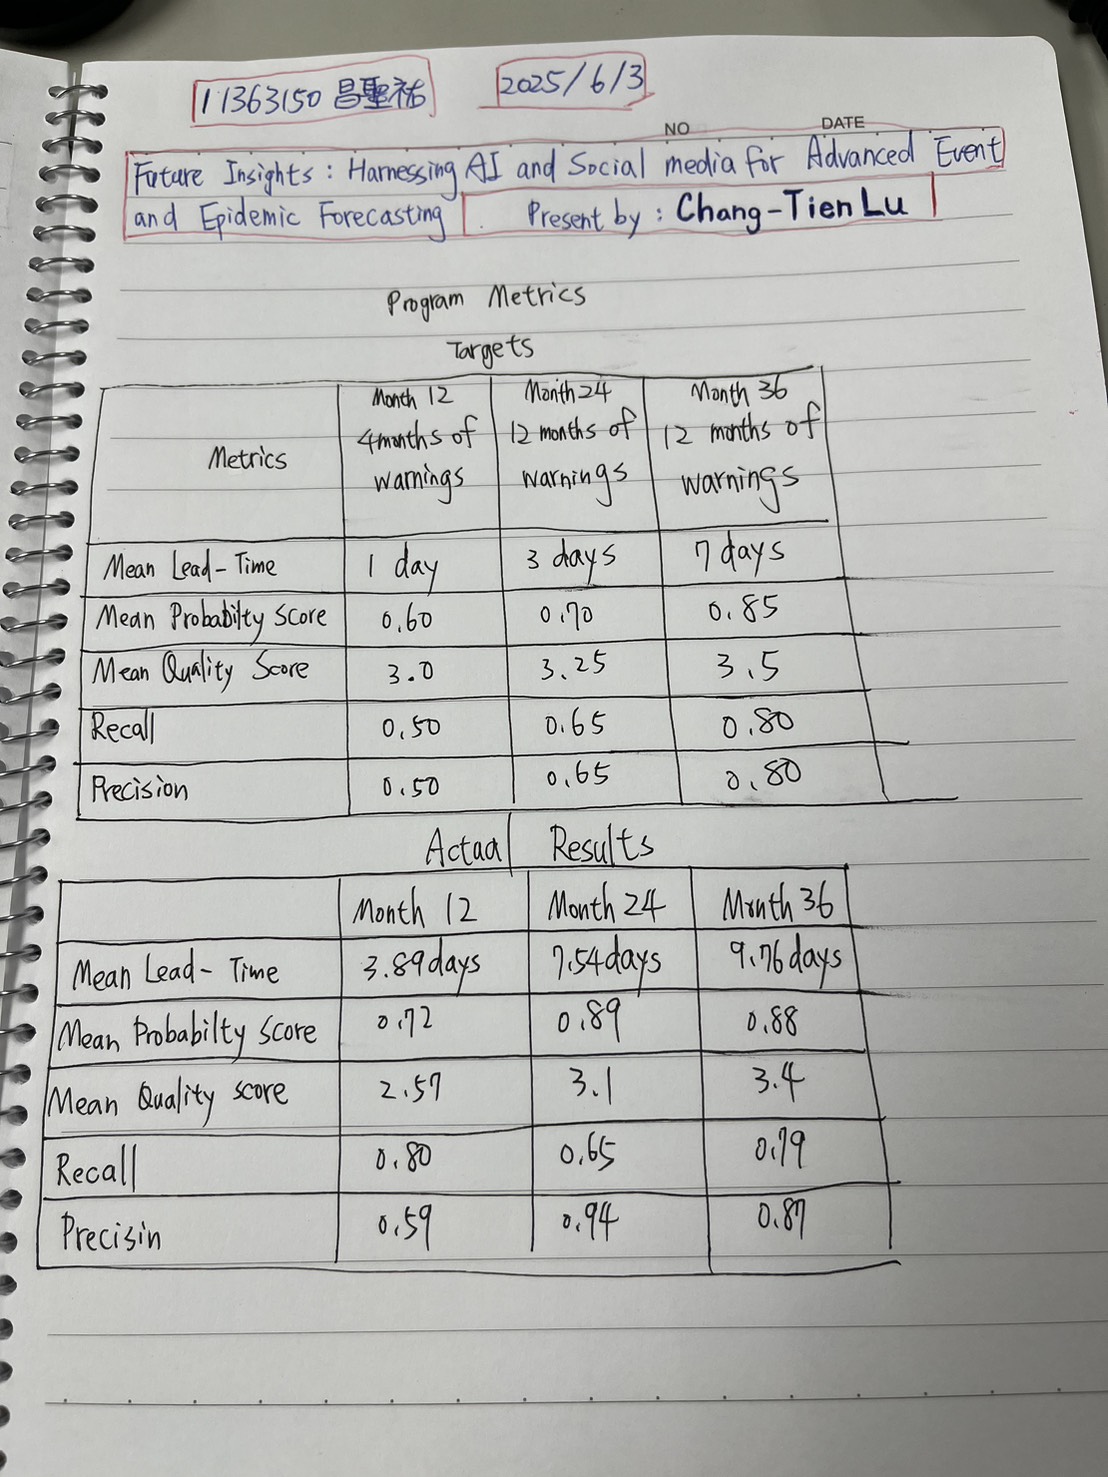 11363150 昌聖祐 2025/6/3
NO DATE
Future Insights : Harnessing AI and Social media for Advanced Event
and Epidemic Forecasting . Present by : Chang-Tien Lu
Program Metrics
Targets
Metrics Month 12 4months of warnings Month 24 12 months of warnings Month 36 12 months of warnings
Mean Lead-Time 1 day 3 days 7 days
Mean Probabilty Score 0.60 0.70 0.85
Mean Quality Score 3.0 3.25 3.5
Recall 0.50 0.65 0.80
Precision 0.50 0.65 0.80
Actual Results
Month 12 Month 24 Month 36
Mean Lead-Time 3.89days 7.54days 9.76days
Mean Probabilty Score 0.72 0.89 0.88
Mean Quality score 2.57 3.1 3.4
Recall 0.80 0.65 0.79
Precisin 0.59 0.94 0.87